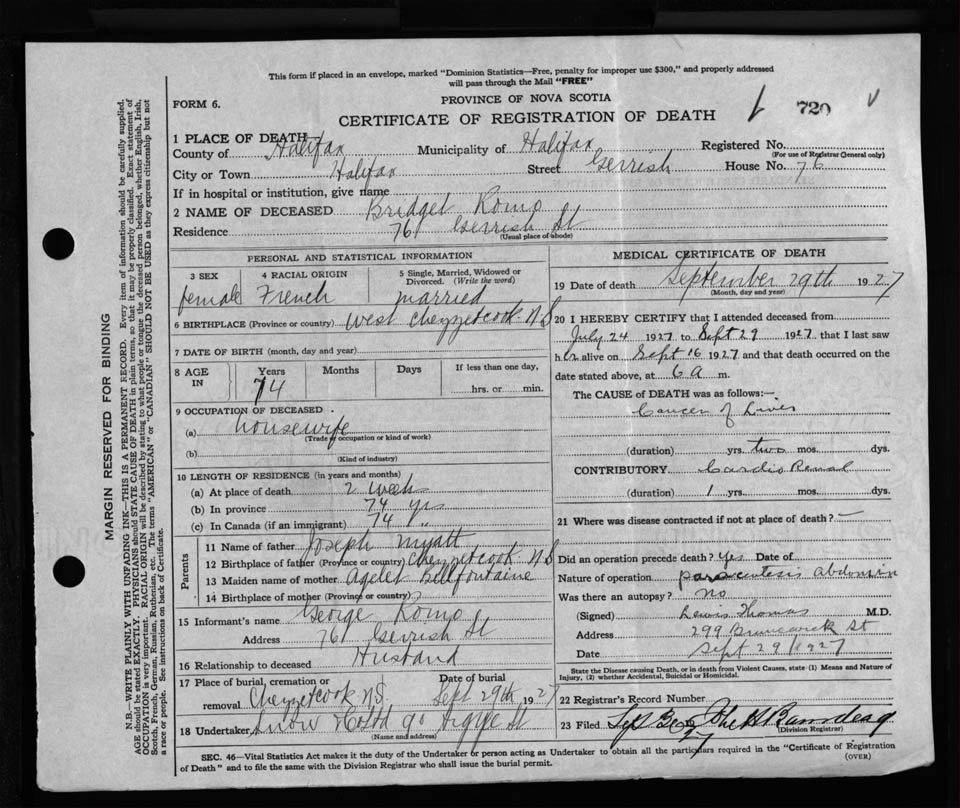 This form if placed in an envelope, marked "Dominion Statistics—Free, penalty for improper use $300," and properly addressed
will pass through the Mail "FREE"
FORM 6.
PROVINCE OF NOVA SCOTIA
720
CERTIFICATE OF REGISTRATION OF DEATH
1 PLACE OF DEATH
County of Halifax Municipality of Halifax Registered No.
(For use of Registrar General only)
City or Town Halifax Street Gerrish House No. 76
If in hospital or institution, give name
2 NAME OF DECEASED Bridget Romo
Residence 76 Gerrish St
(Usual place of abode)
PERSONAL AND STATISTICAL INFORMATION
3 SEX 4 RACIAL ORIGIN 5 Single, Married, Widowed or
Divorced. (Write the word)
female French married
6 BIRTHPLACE (Province or country) West Chezzetcook N S
7 DATE OF BIRTH (month, day and year)
8 AGE IN Years Months Days If less than one day,
74 hrs. or min.
9 OCCUPATION OF DECEASED
(a) housewife
(Trade of occupation or kind of work)
(b)
(Kind of industry)
10 LENGTH OF RESIDENCE (in years and months)
(a) At place of death 2 week
(b) In province 74 yrs
(c) In Canada (if an immigrant) 74 "
Parents
11 Name of father Joseph Myatt
12 Birthplace of father (Province or country) Chezzetcook N S
13 Maiden name of mother Bellfontaine
14 Birthplace of mother (Province or country) ?
15 Informant's name George Romo
Address 76 Gerrish St
16 Relationship to deceased Husband
17 Place of burial, cremation or Date of burial
removal Chezzetcook N.S. Sept 29th 1927
18 Undertaker Snow & Co Ltd 90 Argyle St
(Name and address)
MEDICAL CERTIFICATE OF DEATH
19 Date of death September 29th 1927
(Month, day and year)
20 I HEREBY CERTIFY that I attended deceased from
July 24 1927 to Sept 29 1927 that I last saw
her alive on Sept 16 1927 and that death occurred on the
date stated above, at 6 a m.
The CAUSE of DEATH was as follows:—
Cancer of Liver
(duration) yrs. two mos. dys.
CONTRIBUTORY Cardio Renal
(duration) 1 yrs. mos. dys.
21 Where was disease contracted if not at place of death? —
Did an operation precede death? Yes Date of
Nature of operation paracentesis Abdomin
Was there an autopsy? No
(Signed) Lewis Thomas M.D.
Address 299 Brunswick St
Date Sept 29 1927
State the Disease causing Death, or in death from Violent Causes, state (1) Means and Nature of
Injury, (2) whether Accidental, Suicidal or Homicidal.
22 Registrar's Record Number
23 Filed
(Division Registrar)
SEC. 46—Vital Statistics Act makes it the duty of the Undertaker or person acting as Undertaker to obtain all the particulars required in the "Certificate of Registration
of Death" and to file the same with the Division Registrar who shall issue the burial permit.
(OVER)
MARGIN RESERVED FOR BINDING
N.B.—WRITE PLAINLY WITH UNFADING INK—THIS IS A PERMANENT RECORD. Every item of information should be carefully supplied.
AGE should be stated EXACTLY. PHYSICIANS should STATE CAUSE OF DEATH in plain terms, so that it may be properly classified. Exact statement of
OCCUPATION is very important. RACIAL ORIGIN will be described by stating to what people or tongue the deceased person belonged, whether English, Irish,
Scotch, French, German, Russian, Ruthenian, etc. The terms "AMERICAN" or "CANADIAN" SHOULD NOT BE USED as they express citizenship but not
a race or people. See instructions on back of Certificate.